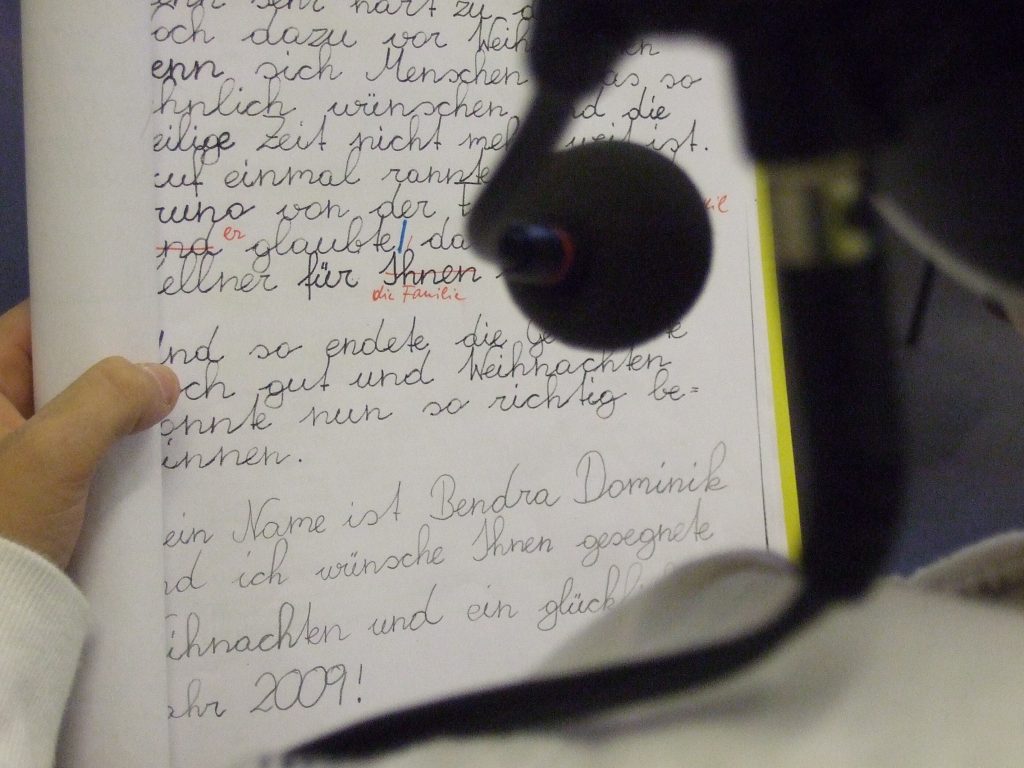 sehr hart zu
och dazu vor Weih en
enn sich Menschen as so
hnlich wünschen nd die
eilige Zeit nicht meh weit ist.
uf einmal rannte
runo von der
er glaubte, da
ellner für Ihnen
die Familie
nd so endete die Ge
och gut und Weihnachten
onnte nun so richtig be=
innen.
ein Name ist Bendra Dominik
nd ich wünsche Ihnen gesegnete
eihnachten und ein glückli
ahr 2009!